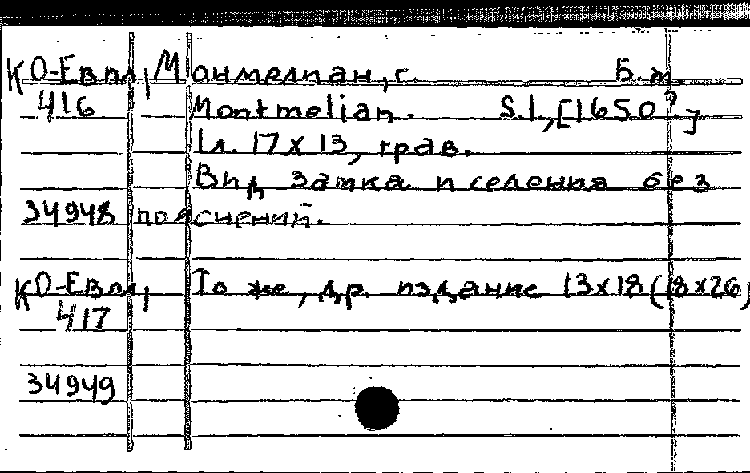 КО-Евпл, Монмелиан, г. Б.м.
416 Montmelian. S.l., [1650?]
1л. 17 x 13, грав.
Вид замка и селения без
34948 пояснений.
КО-Евпл, То же, др. издание 13x18 (18x26)
417
34949